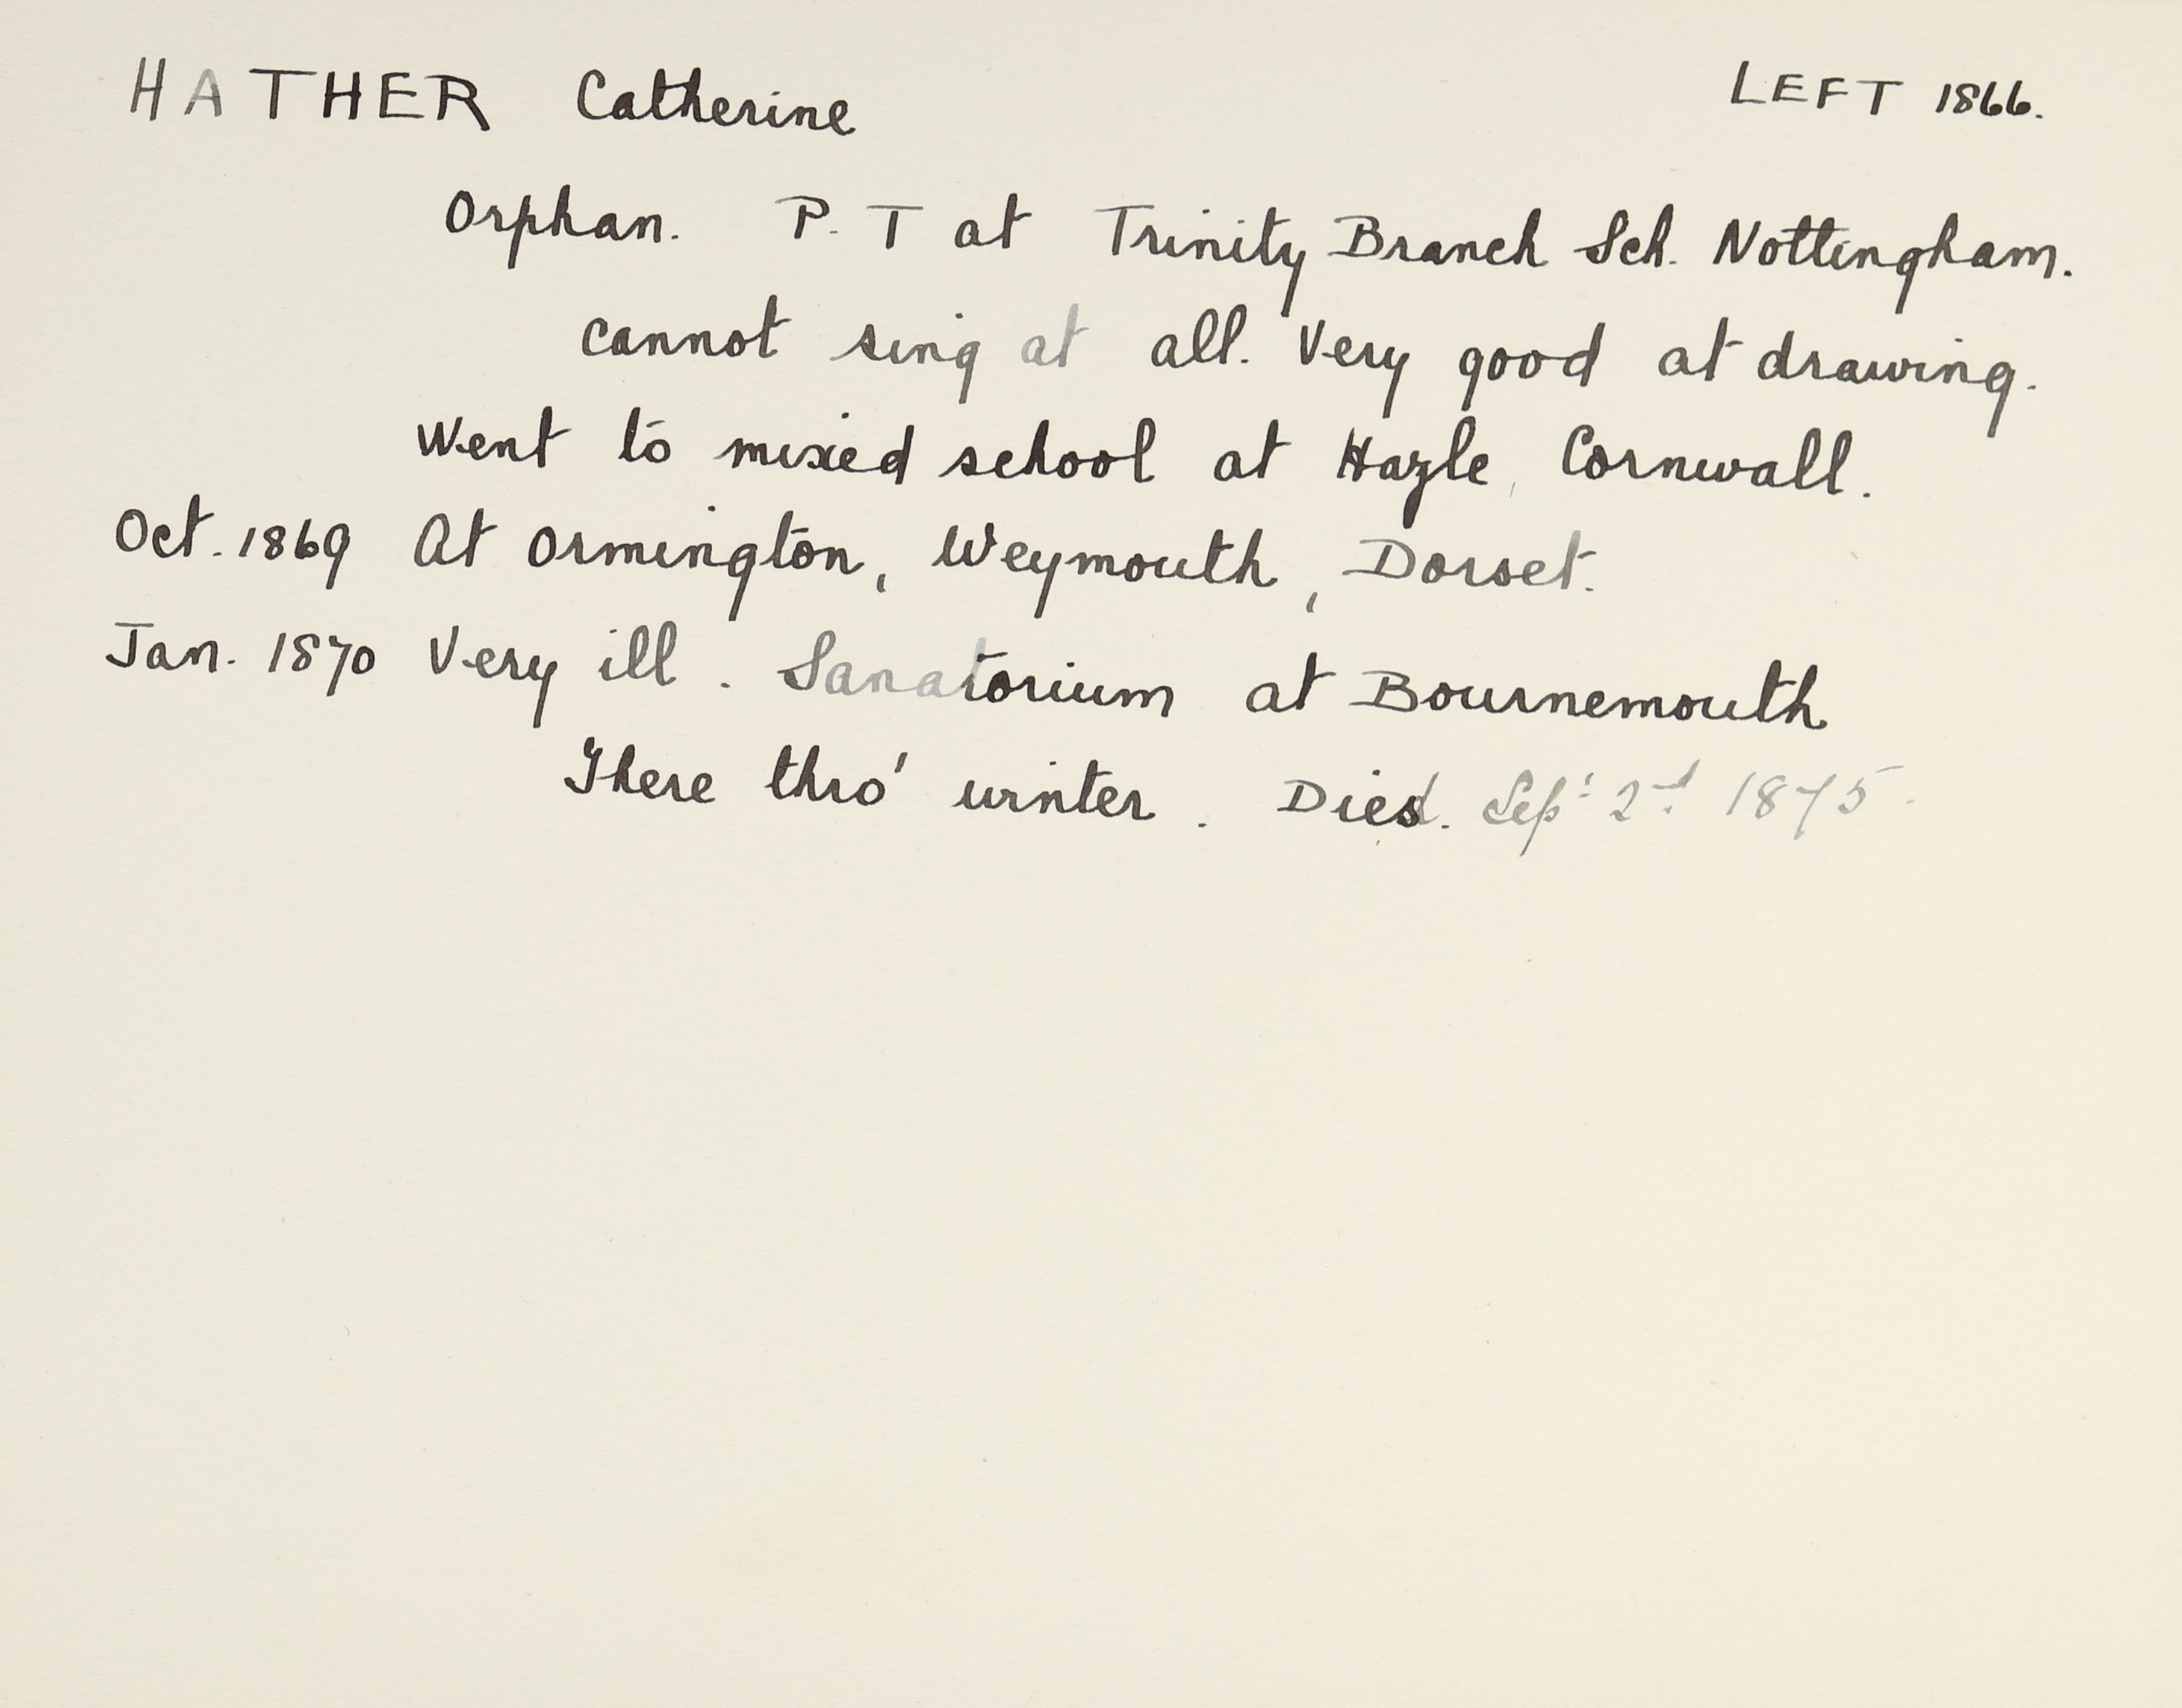 HATHER Catherine LEFT 1866.
Orphan. P. T at Trinity Branch Sch. Nottingham.
Cannot sing at all. Very good at drawing.
Went to mixed school at Hazle, Cornwall.
Oct. 1869 At Ormington, Weymouth, Dorset.
Jan. 1870 Very ill. Sanatorium at Bournemouth
There thro' winter. Died. Sept 2nd 1875.